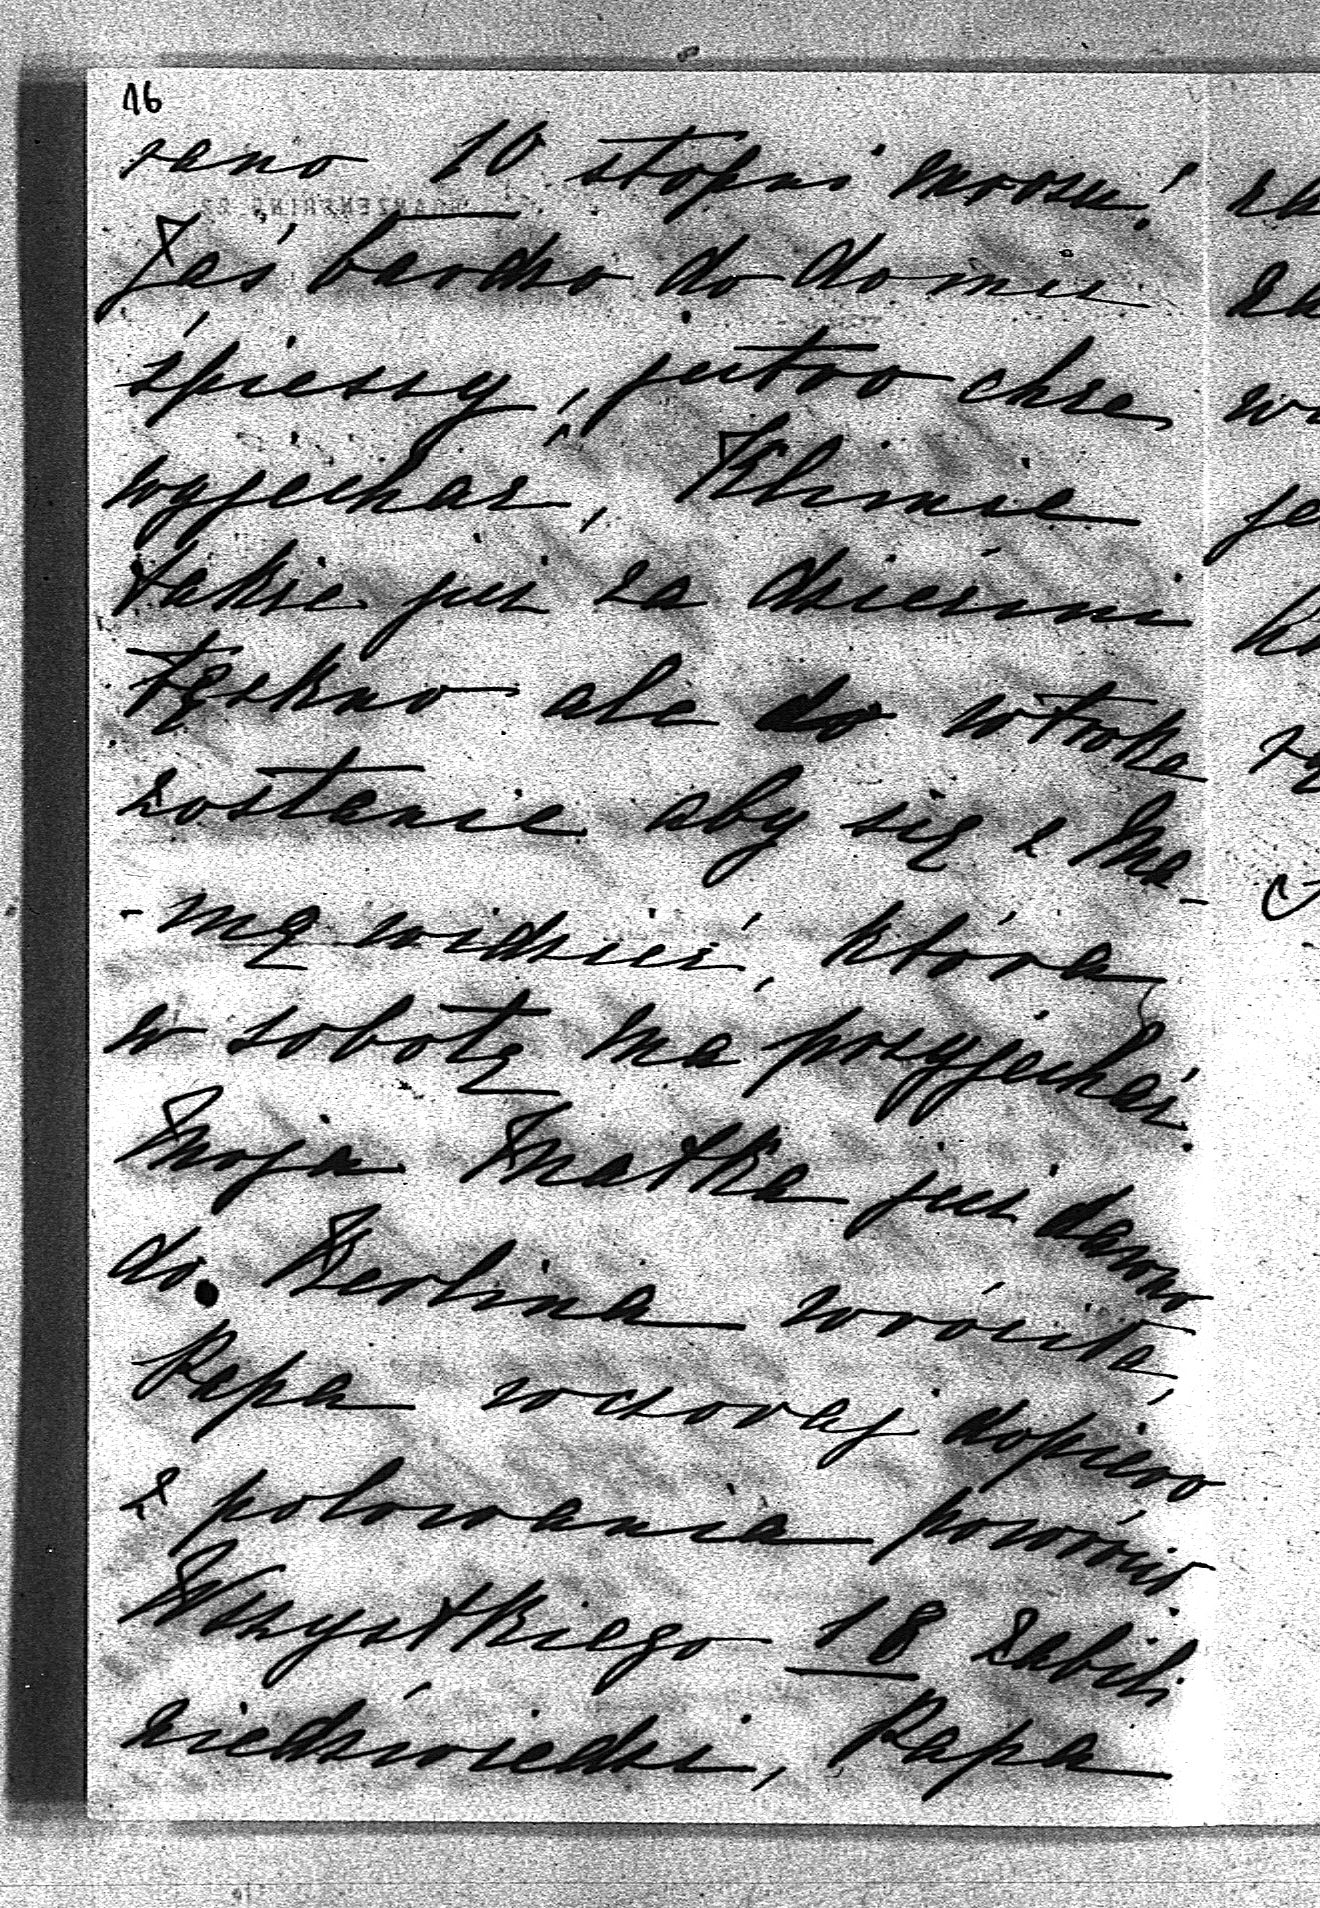 16
rano 10 stopni mrozu!
Jaś bardzo do domu
śpieszy, jutro chce
wyjechać, Klimie
także już za dziećmi
tęskno ale do wtorku
zostanie aby się z Ma-
-mą widzieć, która
w sobotę ma przyjechać.
Moja Matka już dawno
do Berlina wróciła,
Papa wczoraj dopiero
z polowania powrócił
Wszystkiego 18 zabili
niedźwiedzi, Papa